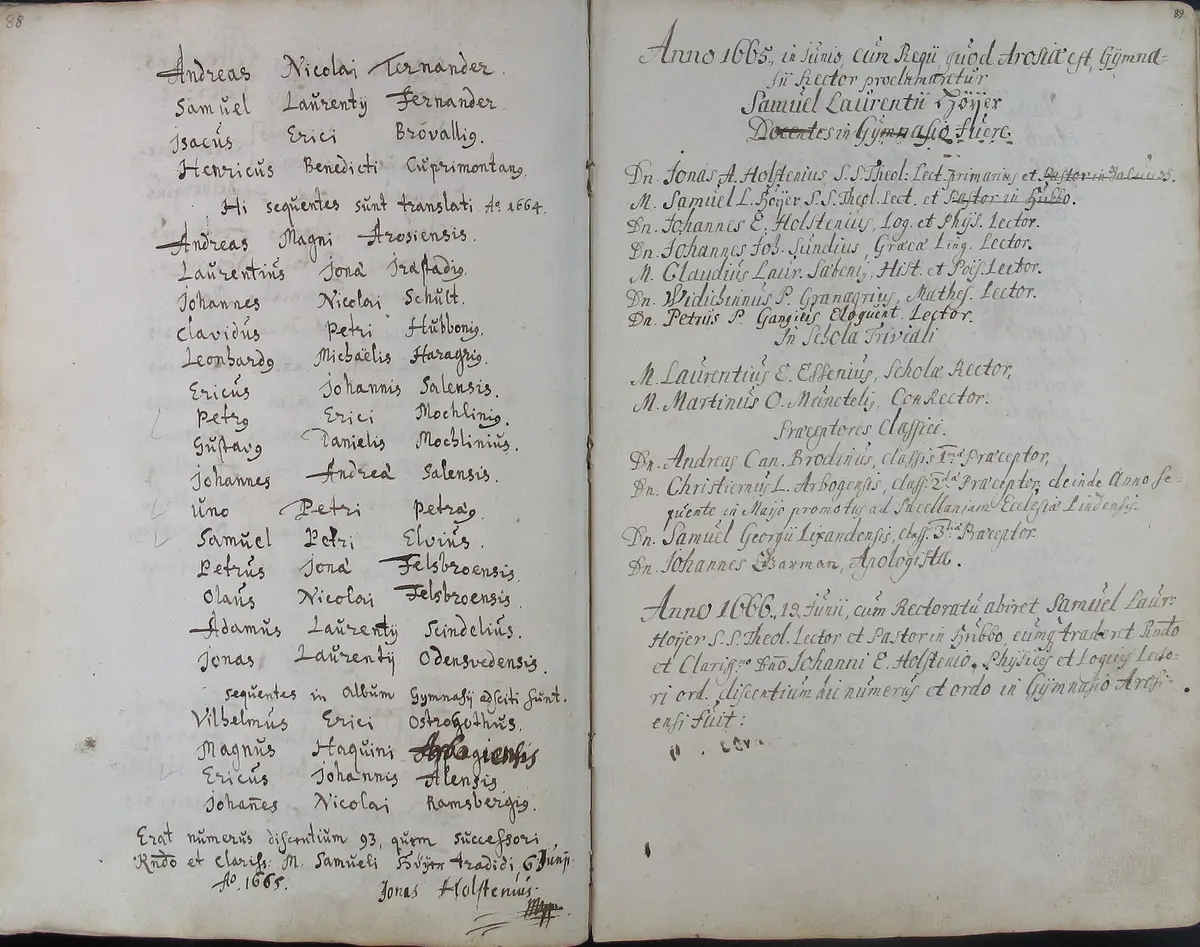 88
Andreas Nicolai Ternander.
Samuel Laurentij Fernander
Isacus Erici Brovallig.
Henricus Benedicti Cuprimontang.
Hi sequentes sunt translati Ao 1664.
Andreas Magni Arosiensis.
Laurentius Jonæ
Johannes Nicolai Schult.
Clavidus Petri Hubbonig.
Leonhardg Michaëlis Haragrig.
Ericus Johannis Salensis.
Petrg Erici Mochlinig.
Gustavg Danielis Mochlinius.
Johannes Andreæ Salensis.
Uno Petri Petræg.
Samuel Petri Elvius.
Petrus Jonæ Felsbroensis.
Olaus Nicolai Felsbroensis.
Adamus Laurentij Scindelius.
Jonas Laurentij Odensvedensis.
sequentes in Album Gymnasij adsciti sunt.
Vilhelmus Erici Ostrogothus.
Magnus Haquini
Ericus Johannis Alensis
Johan̄es Nicolai Ramsbergig.
Erat numerus discentium 93, quem successori
Rndo et clariss: M. Samueli Höyer tradidi 6 Junij
Ao. 1665. Jonas Holstenius.
89
Anno 1665, in Junio, cum Regii, quod Arosiæ est, Gymna-
sii Rector proclamaretur
Samuel Laurentii Höijer
Docentes in Gymnasio fuere.
Dn. Jonas A. Holstenius S.S. Theol: Lect. primarius et Pastor in
M. Samuel L. Höÿer S.S. Theol. Lect. et Pastor in Hubbo.
Dn. Johannes E. Holstenius, Log. et Phÿs. Lector.
Dn. Johannes Joh. Sundius, Græcæ Ling. Lector.
M. Claudius Laur. Sabenig, Hist. et Poës. Lector.
Dn. Widichinnus P. Granagrius, Mathes. Lector.
Dn. Petrus P. Gangius Eloquent. Lector.
In Schola Triviali
M. Laurentius E. Essenius, Scholæ Rector,
M. Martinus O. Munctelig, ConRector.
Præceptores Classici.
Dn. Andreas Can. Brodinus, classis 1mæ Præceptor,
Dn. Christiernus L. Arbogensis, class. 2dæ Præceptor, deinde Anno se-
quente in Majo promotus ad Sacellaniam Ecclesiæ Lindensis.
Dn. Samuel Georgii Lixandensis, class. 3tiæ Præceptor.
Dn. Johannes Barman, Apologista.
Anno 1666, 19 Junii, cum Rectoratu abiret Samuel Laur:
Hoÿer S.S. Theol. Lector et Pastor in Hubbo, eumq traderet Rndo
et Clarissmo Dno Johanni E. Holstenio, Physices et Logices Lecto-
ri ord. discentium hic numerus et ordo in Gÿmnasio Arosi-
ensi fuit: